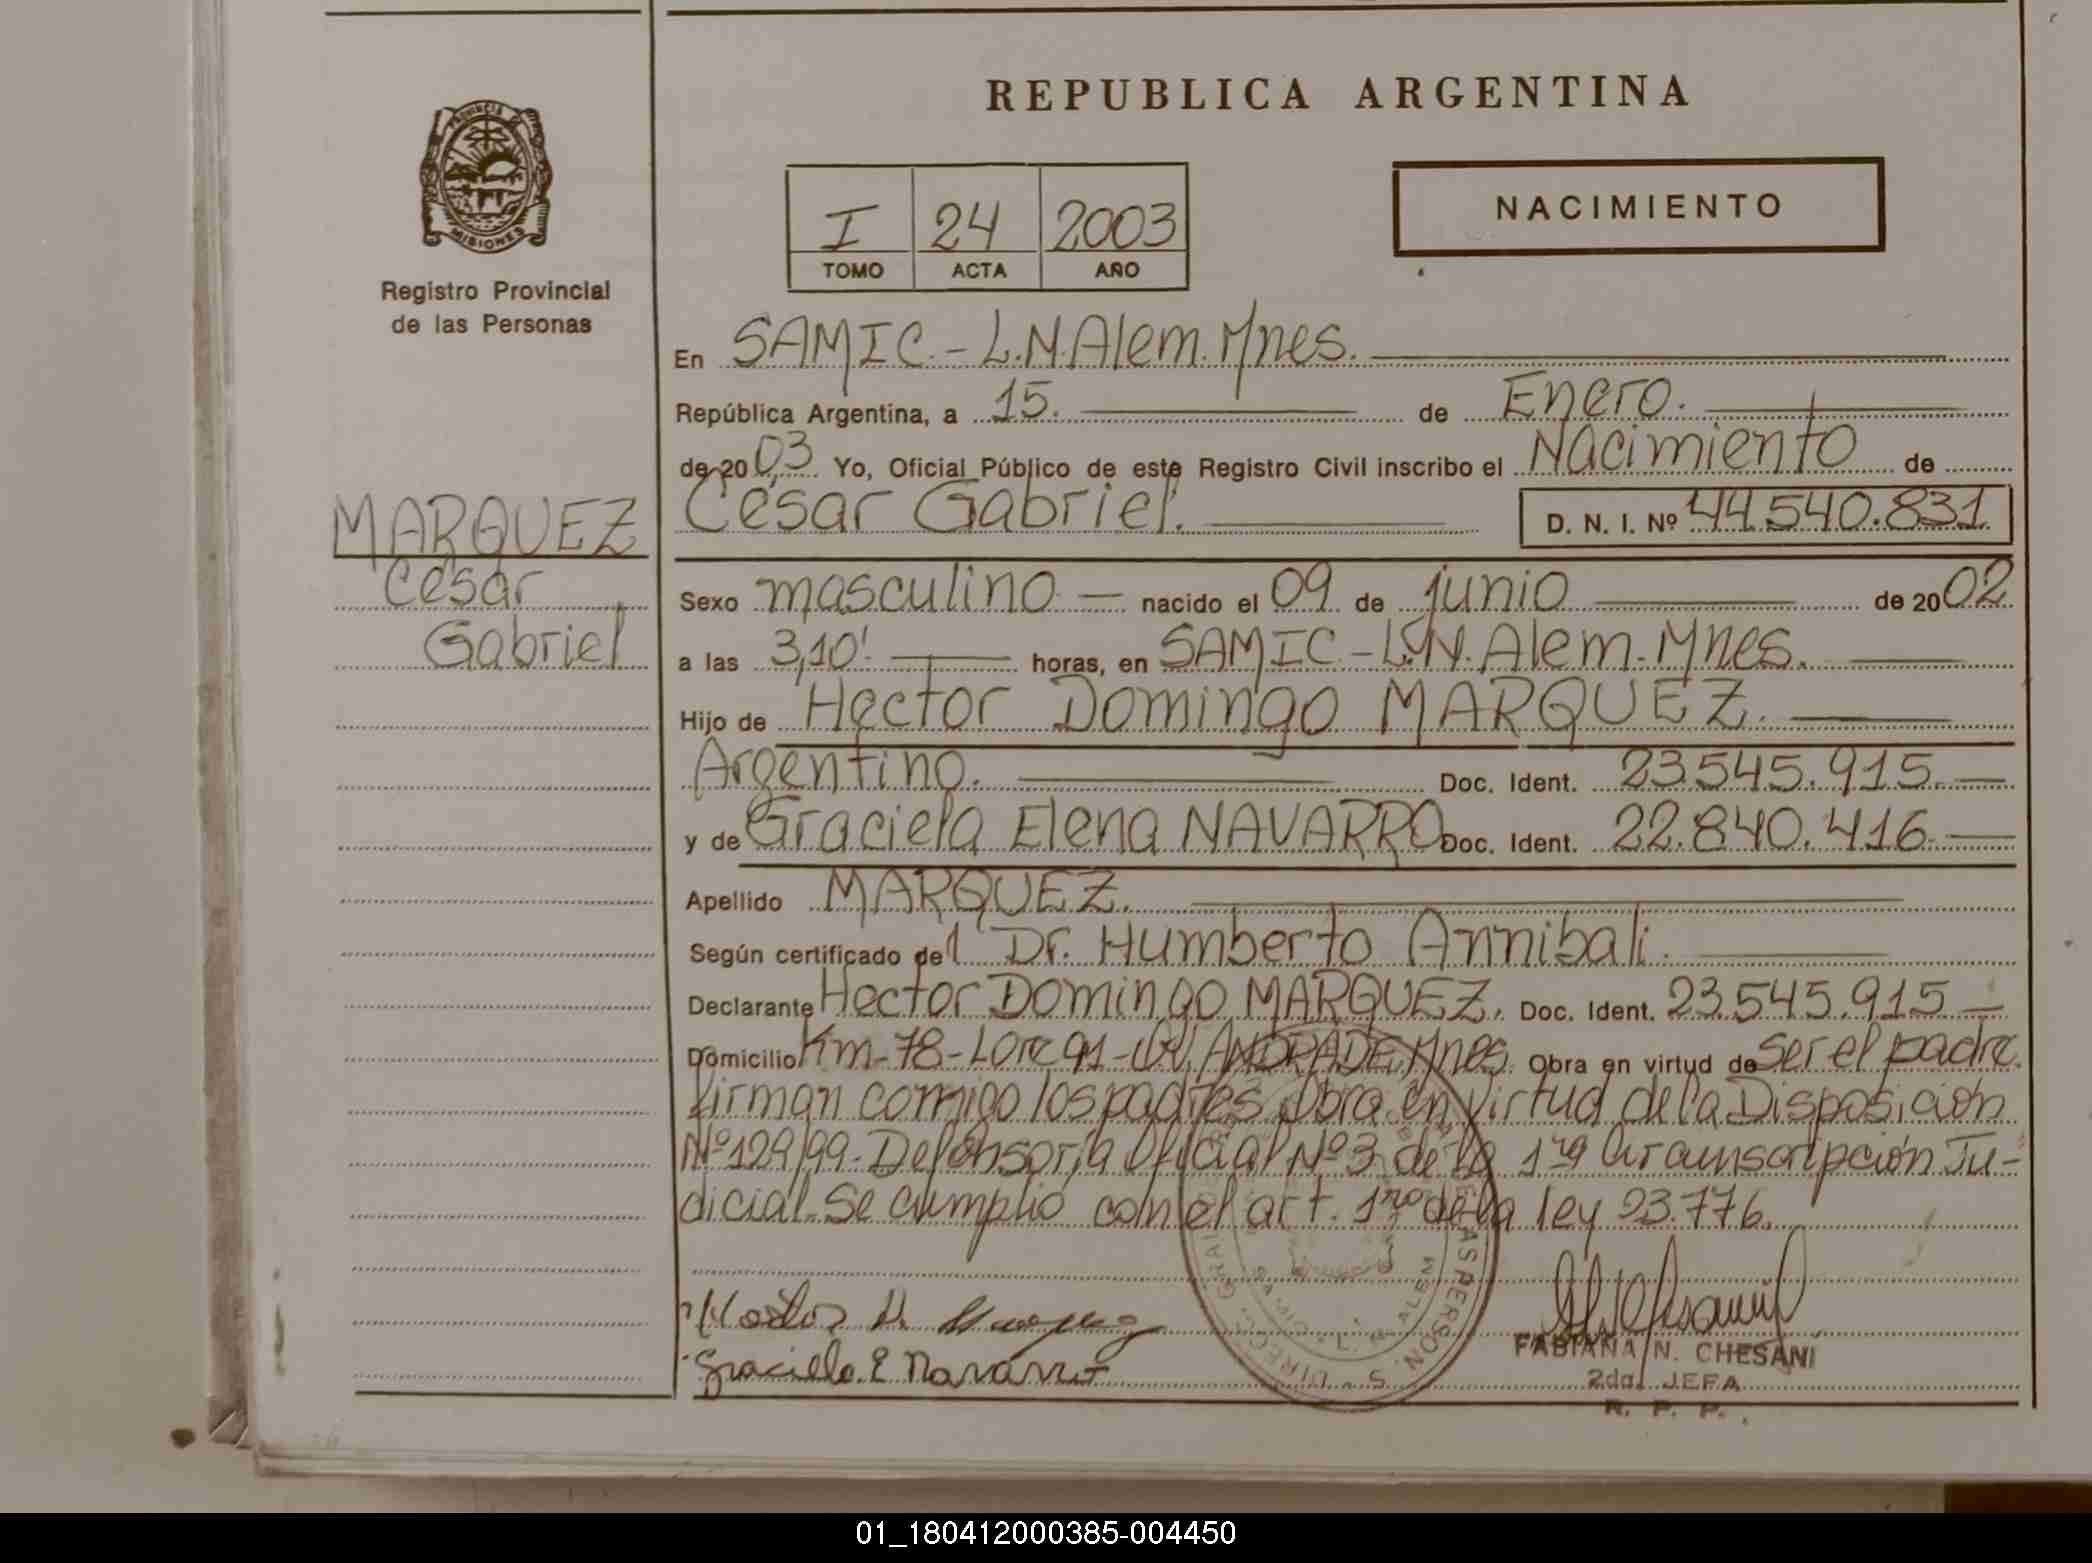 REPUBLICA ARGENTINA
PROVINCIA DE
MISIONES
Registro Provincial
de las Personas
I 24 2003
TOMO ACTA AÑO
NACIMIENTO
En SAMIC.-L.N.Alem.Mnes.
República Argentina, a 15. de Enero.
de 2003 Yo, Oficial Público de este Registro Civil inscribo el Nacimiento de
MARQUEZ
César
Gabriel
César Gabriel. D. N. I. Nº 44.540.831
Sexo masculino nacido el 09 de junio de 2002
a las 3,10' horas, en SAMIC-L.N.Alem.Mnes.
Hijo de Hector Domingo MARQUEZ.
Argentino. Doc. Ident. 23.545.915.
y de Graciela Elena NAVARRO Doc. Ident. 22.840.416
Apellido MARQUEZ.
Según certificado del Dr. Humberto Annibali.
Declarante Hector Domingo MARQUEZ. Doc. Ident. 23.545.915
Domicilio Km-78-Lote 91- ANDRADE, Mnes. Obra en virtud de Ser el padre.
Firman conmigo los padres. Obra en virtud de la Disposición
Nº 129/99-Defensoría Oficial Nº 3 de la 1ra Circunscripción Ju-
dicial. Se cumplió con el art. 1ro de la ley 23.776.
Graciela E Navarro
FABIANA N. CHESANI
2da. JEFA
R. P. P.
01_180412000385-004450